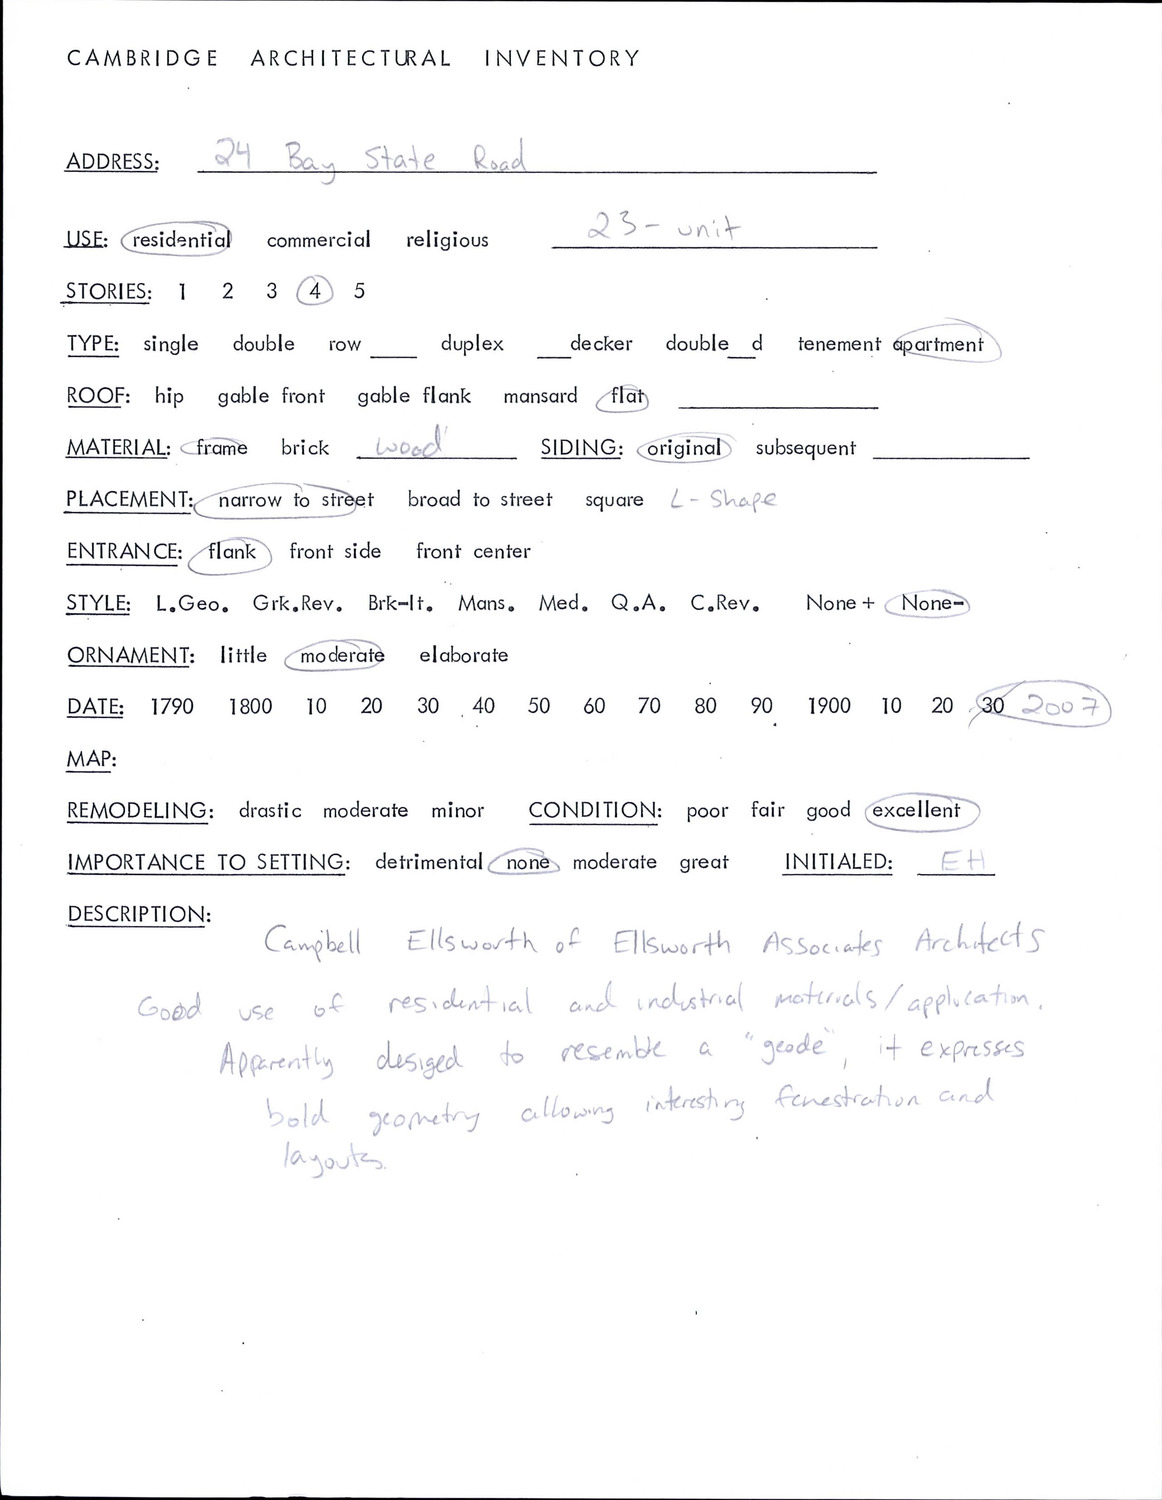 CAMBRIDGE ARCHITECTURAL INVENTORY
ADDRESS: 24 Bay State Road
USE: residential commercial religious 23-unit
STORIES: 1 2 3 4 5
TYPE: single double row ____ duplex ___decker double__d tenement apartment
ROOF: hip gable front gable flank mansard flat
MATERIAL: frame brick wood SIDING: original subsequent
PLACEMENT: narrow to street broad to street square L-Shape
ENTRANCE: flank front side front center
STYLE: L.Geo. Grk.Rev. Brk-It. Mans. Med. Q.A. C.Rev. None+ None-
ORNAMENT: little moderate elaborate
DATE: 1790 1800 10 20 30 40 50 60 70 80 90 1900 10 20 30 2007
MAP:
REMODELING: drastic moderate minor CONDITION: poor fair good excellent
IMPORTANCE TO SETTING: detrimental none moderate great INITIALED: EH
DESCRIPTION:
Campbell Ellsworth of Ellsworth Associates Architects
Good use of residential and industrial materials/application.
Apparently desiged to resemble a "geode", it expresses
bold geometry allowing interesting fenestration and
layouts.